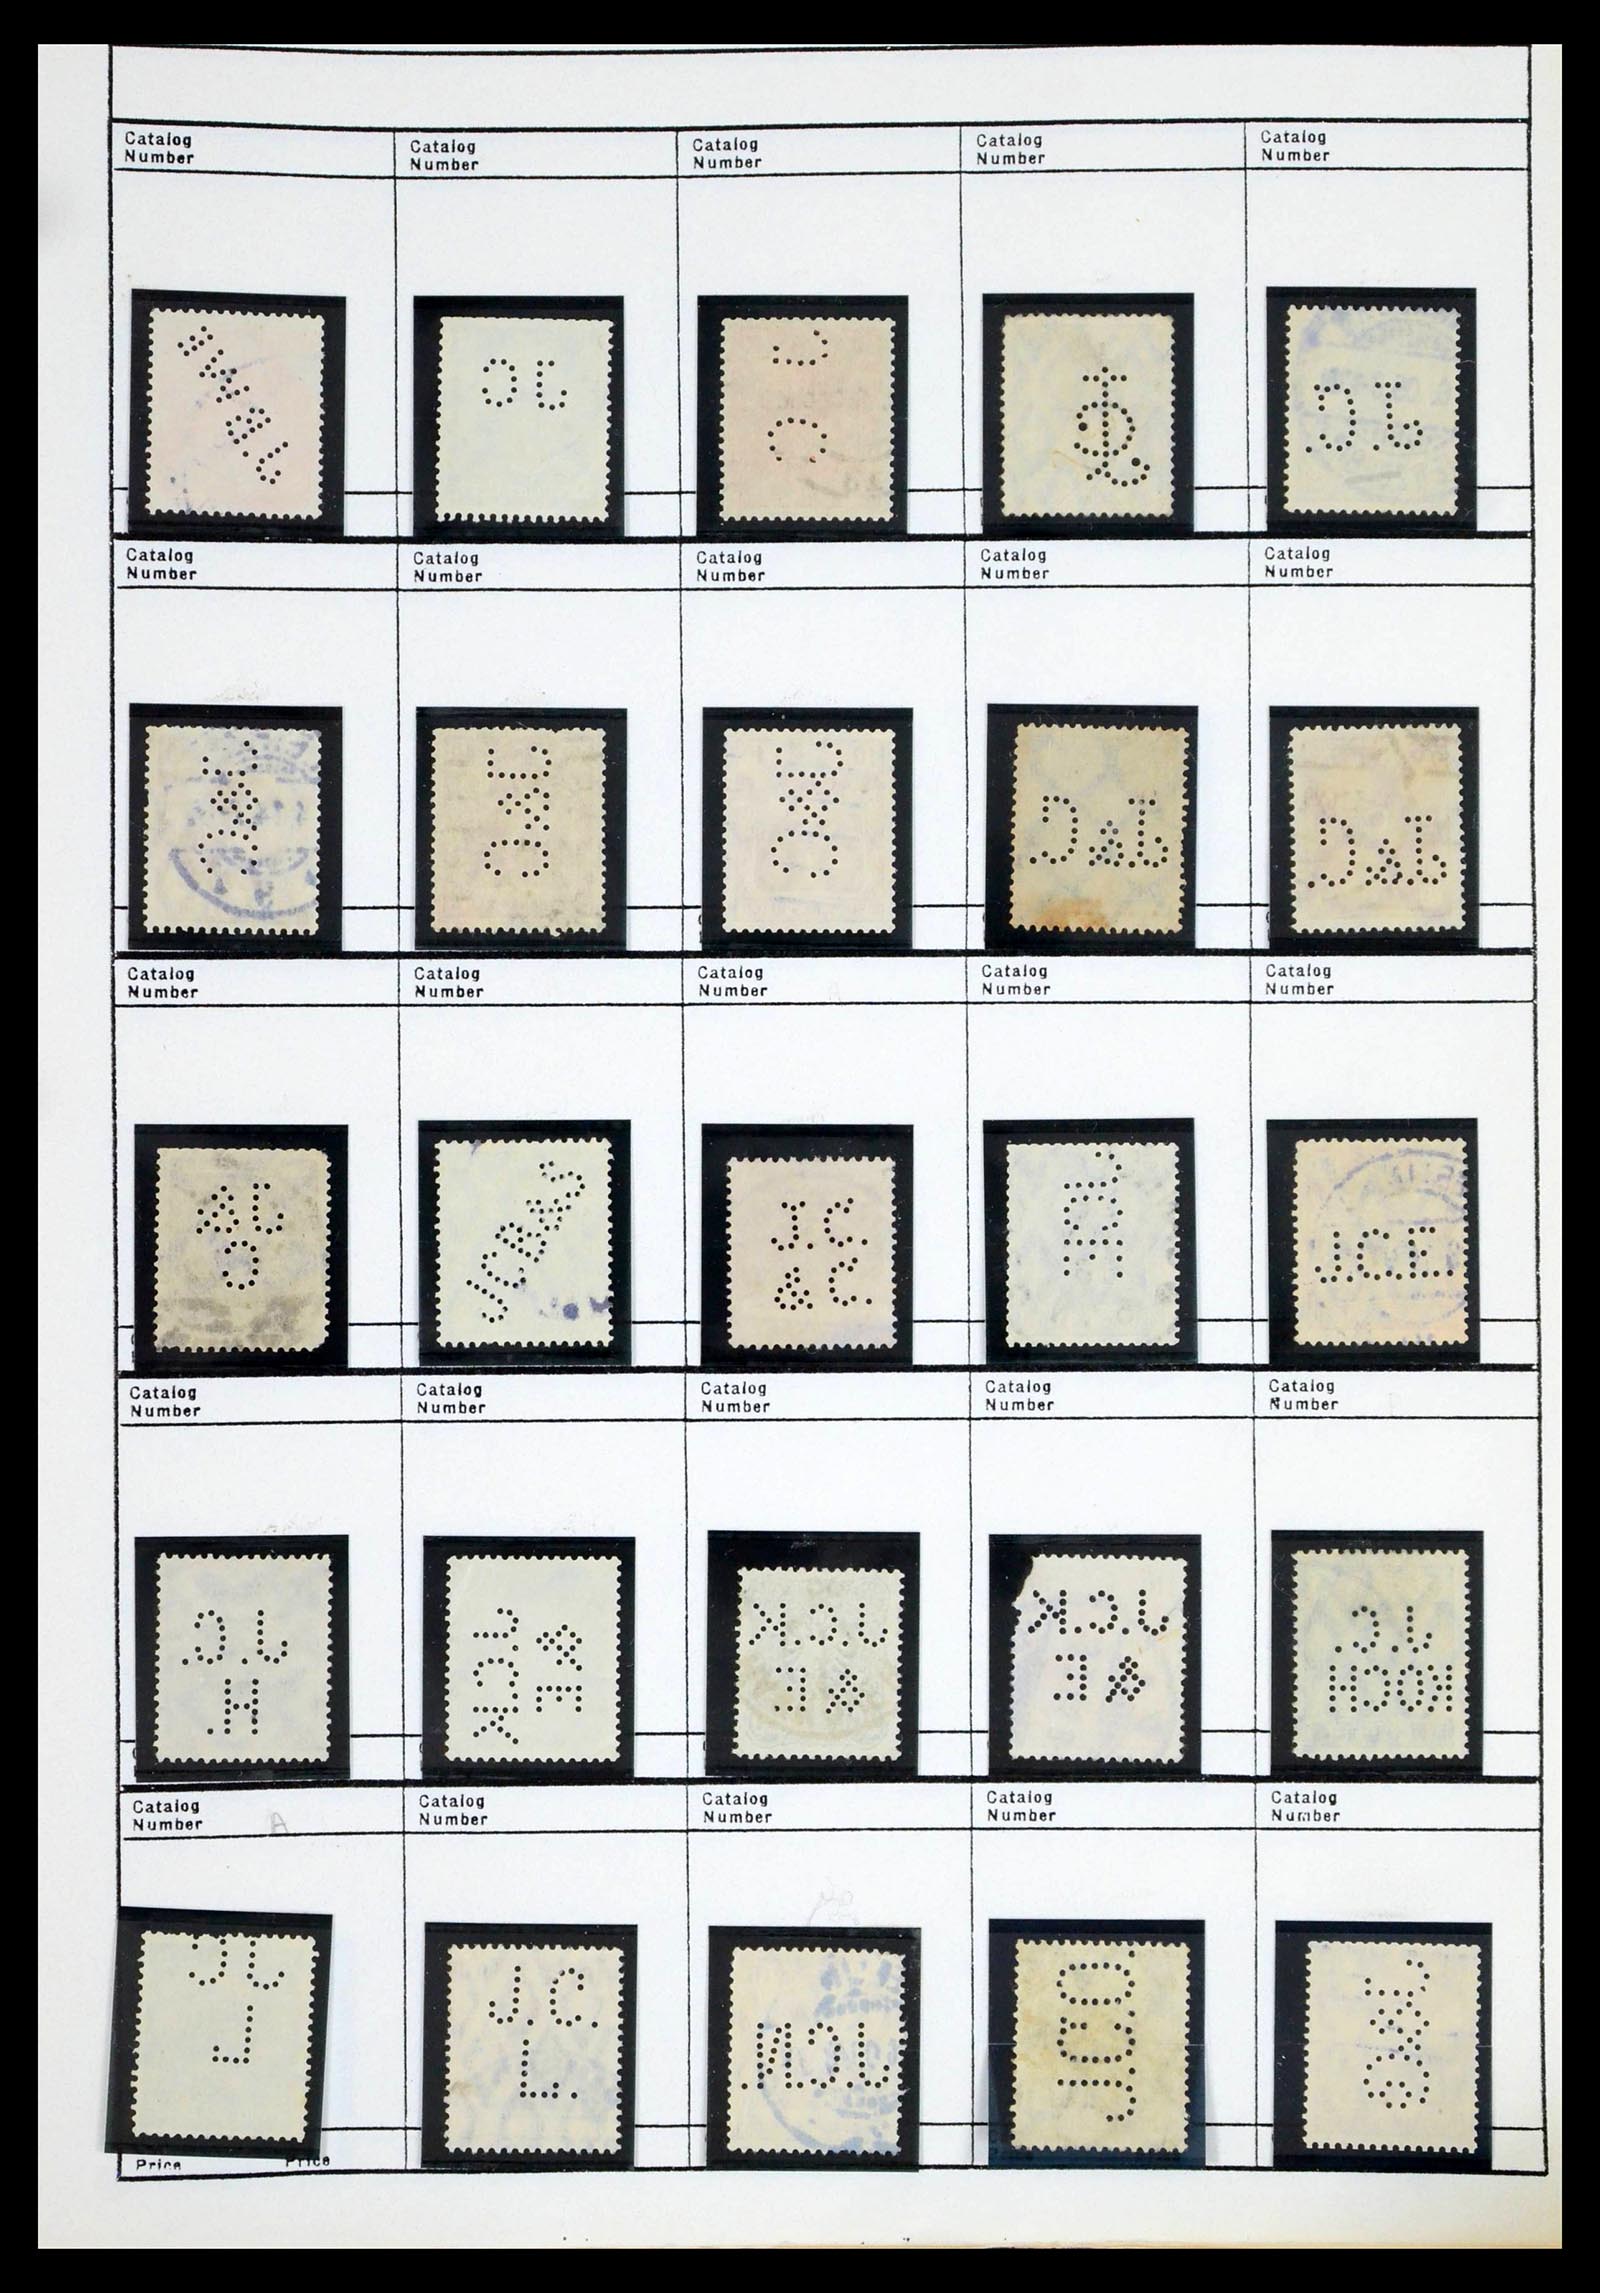 Catalog Number
Catalog Number
Catalog Number
Catalog Number
Catalog Number
JC
J C
JC
Catalog Number
Catalog Number
Catalog Number
Catalog Number
Catalog Number
J&C
J&C
Catalog Number
Catalog Number
Catalog Number
Catalog Number
Catalog Number
J.C.
& C.
JCE
J.C.E.
Catalog Number
Catalog Number
Catalog Number
Catalog Number
Catalog Number
J.C.
H.
JCK
&E
J.C.K
&E
J.C.K
&E
J.C.
KOCH
Catalog Number A
Catalog Number
Catalog Number
Catalog Number
Catalog Number
JC
L
J.C.
L.
J.C.N.
Price Price